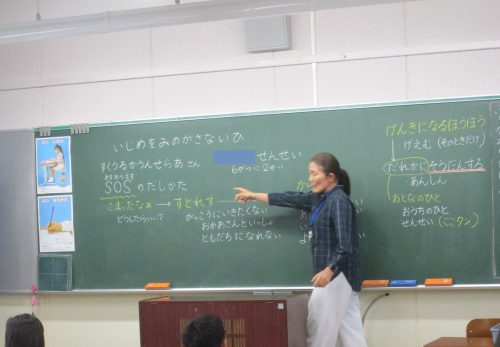 いじめをみのがさないひ
すくうるかうんせらあ さん
せんせい
6がつに2かい
えすおうえす
SOSのだしかた
こまったなぁ → すとれす
どうしたらいい?
がっこうにいきたくない
おかあさんといっしょ
ともだちになれない
げんきになるほうほう
げえむ (そのときだけ)
だれかに そうだんする
あんしん
おとなのひと
おうちのひと
せんせい (ここタン)